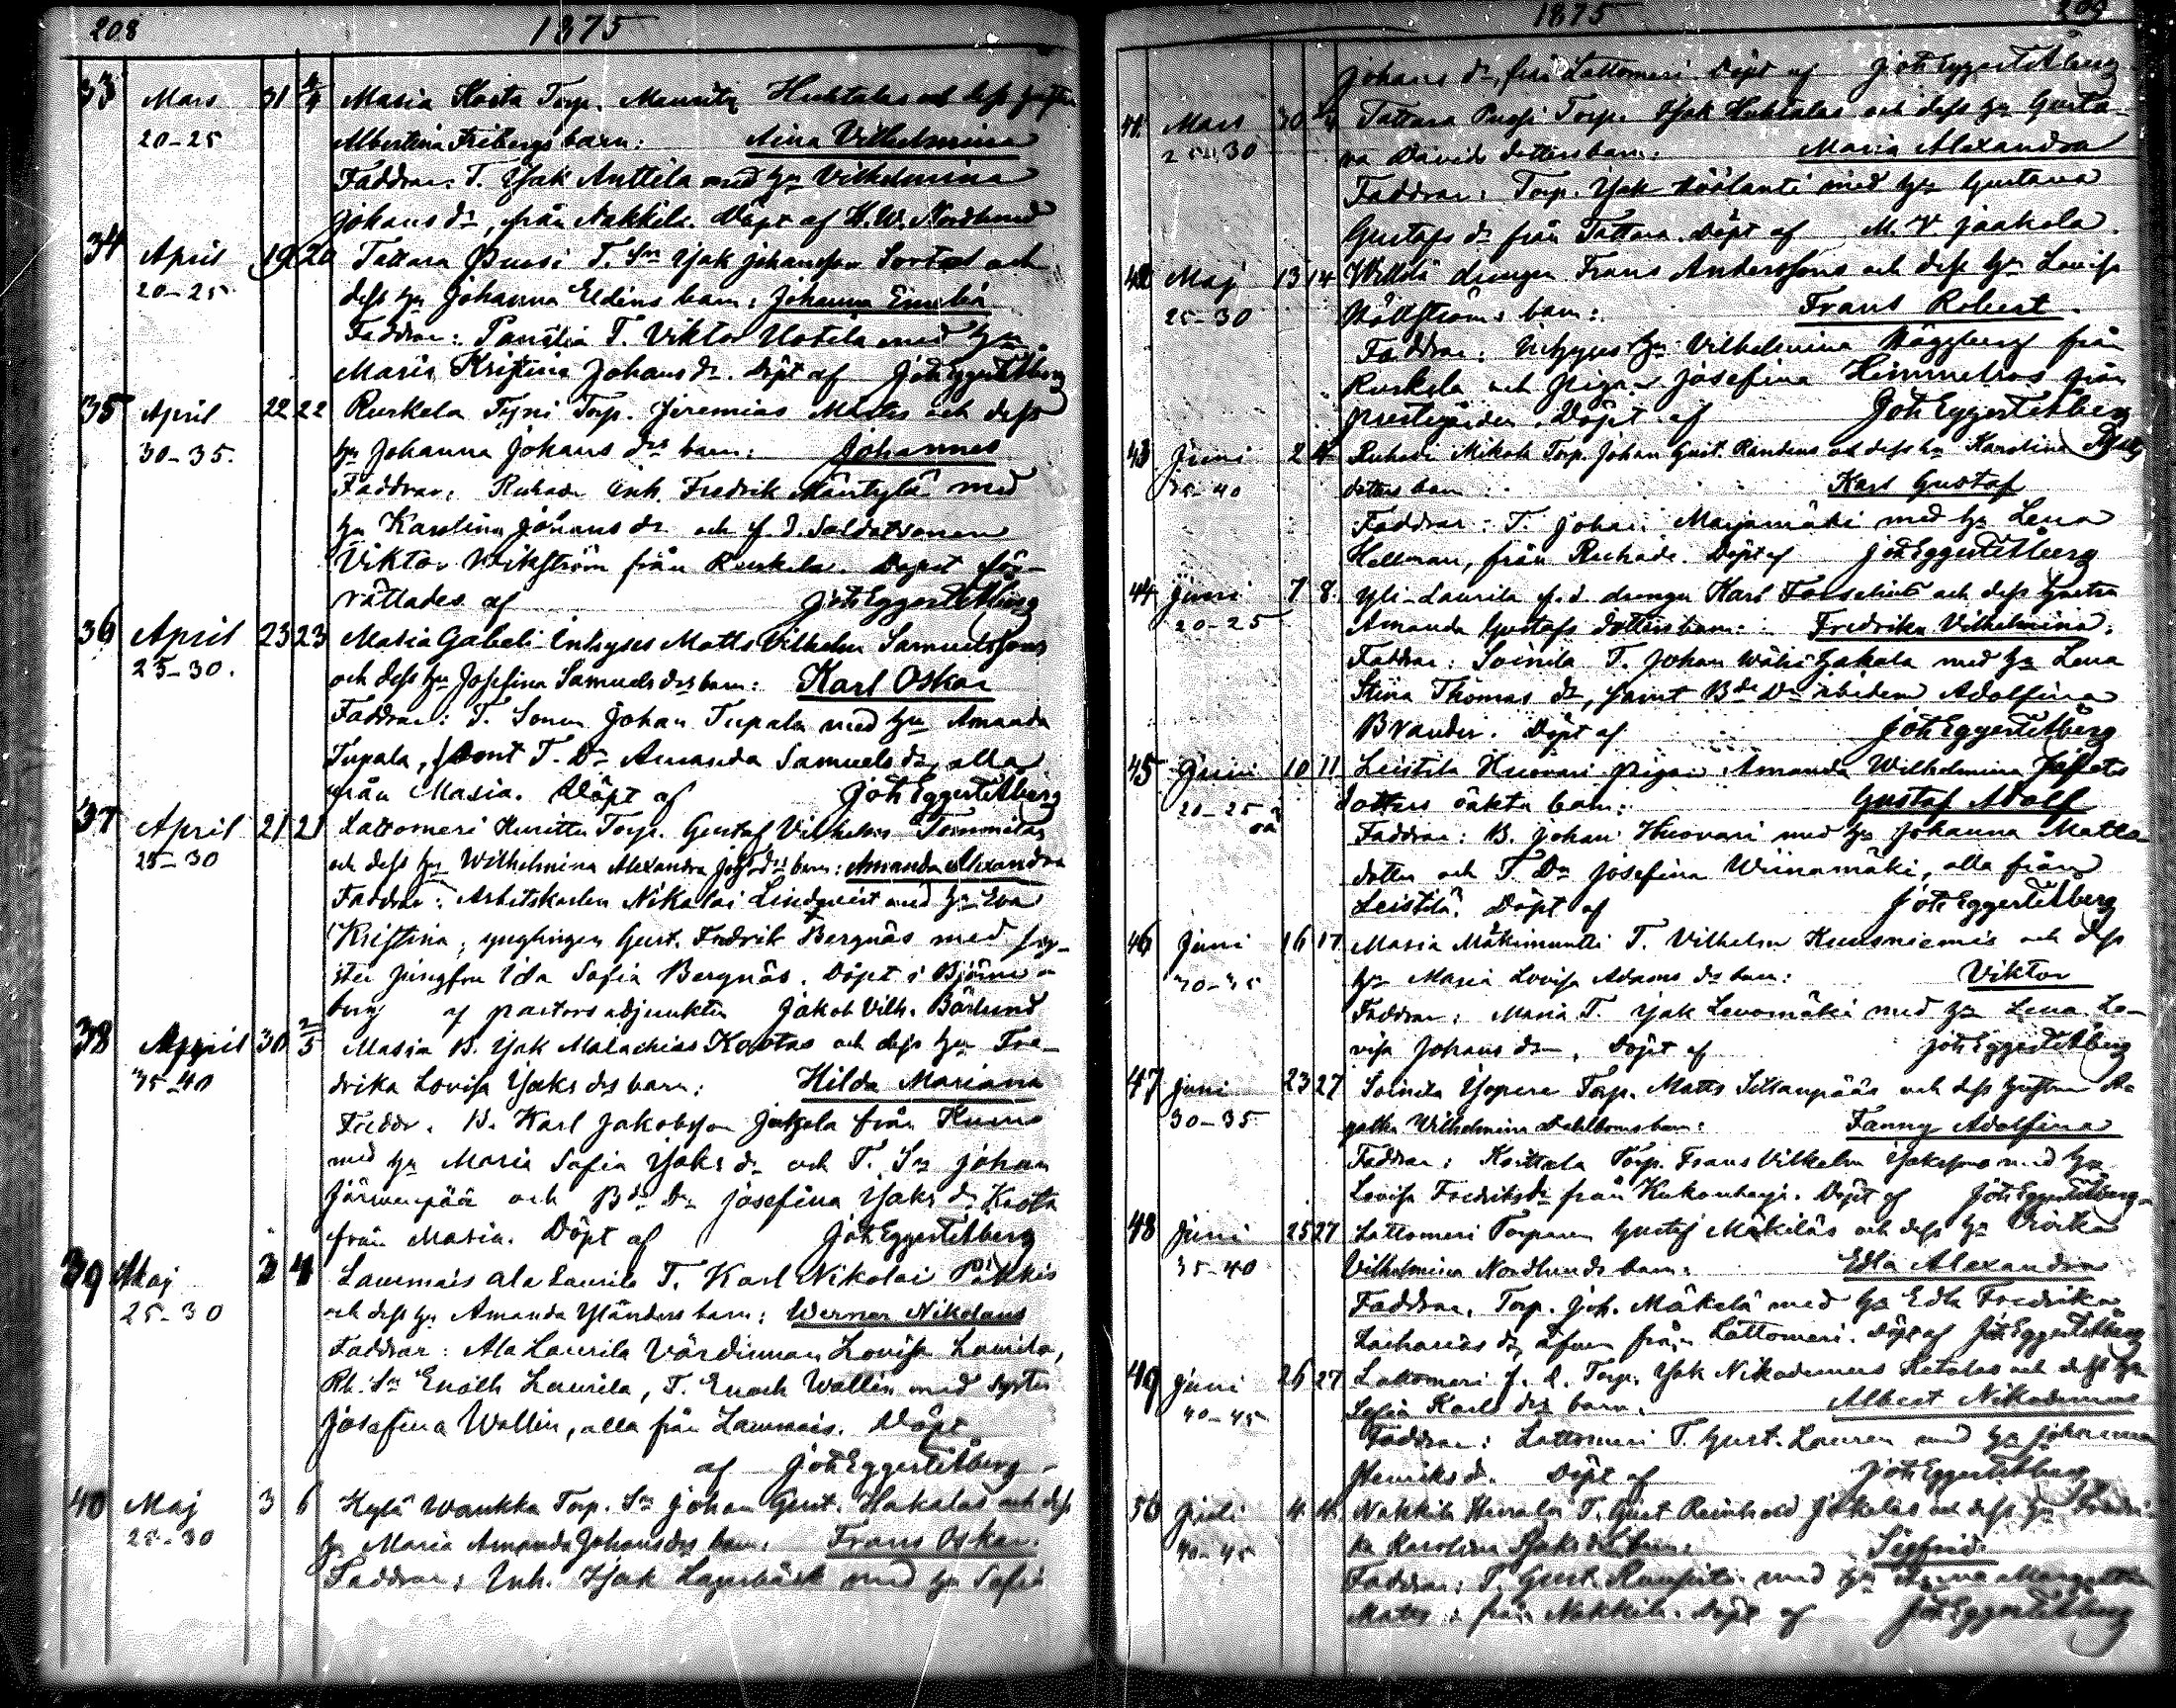 208 1875
33 Mars 31 2/4 Masia Kosta Torp. Mauritz Huhtalas och dess hustru
20-25 Albertina Fribergs barn: Aina Vilhelmina
Faddrar: T. Isak Anttila med hu Vilhelmina
Johans dr, från Nakkila. Döpt af K. W. Nordlund
34 April 19 20 Tattara Pussi T. Sn Isak Johansson och
20-25 dess hu Johanna Eldins barn: Johanna Emilia
Faddrar: T. Viktor Uotila med hu
Maria Kristina Johans dr. Döpt af Joh Eggert Åberg
35 April 22 22 Ruskela Tyni Torp. Jeremias och dess
30-35. hu Johanna Johans drs barn: Johannes
Faddrar: Ruhade Inh. Fredrik Mäntylä med
hu Karolina Johans dr och f. d. Soldatsonen
Viktor Wikström från Ruskela. Dopet för-
rättades af Joh Eggert Åberg
36 April 23 23 Masia Gabeli Inhyses Matts Vilhelm Samuelssons
25-30. och dess hu Josefina Samuels drs barn: Karl Oskar
Faddrar: T. Sonen Johan Tupala med hu Amanda
Tupala, samt T. Dr Amanda Samuels dr, alla
från Masia. Döpt af Joh Eggert Åberg
37 April 21 21 Lattomeri Kuritta Torp. Gustaf Vilhelm Tommilas
25-30 och dess hu Wilhelmina Alexandra drs barn: Amanda Alexandra
Faddrar: Arbetskarlen Nikolai Lindqvist med hu Eva
Kristina, ynglingen Gust. Fredrik Bergnäs med sy-
ster jungfru Ida Sofia Bergnäs. Döpt i Björne-
borg af pastorsadjunkten Jakob Vilh. Bärlund
38 April 30 2/5 Masia B. Isak Malachias Kostas och dess hu Fre-
35-40 drika Lovisa Isaks drs barn: Hilda Mariana
Faddr. B. Karl Jakobsson från Kumo
med hu Maria Sofia Isaks dr och T. Sn Johan
Järvenpää och Bde Dr Josefina Isaks dr Kosta
från Masia. Döpt af Joh Eggert Åberg
39 Maj 3 4 Lammais Ala Laurila T. Karl Nikolai
25-30 och dess hu Amanda Ylanders barn: Werner Nikolaus
Faddrar: Ala Laurila Värdinnan Lovisa Laurila,
Rh. Sn Enoch Laurila, T. Enoch Wallin med syster
Josefina Wallin, alla från Lammais. Döpt
af Joh Eggert Åberg
40 Maj 3 6 Kylä Waukka Torp. Sn Johan Gust. Hakalas och dess
25-30 hu Maria Amanda Johans drs barn: Frans Oskar.
Faddrar: Inh. Isak Lagerbäck med hu Sofia
1875 209
Johans dr, från Lattomeri. Döpt af Joh Eggert Åberg
41. Mars 30 Tattara Pussi Torp. Isak Huhtalas och dess hu Gusta-
25-30 va Davids dotters barn: Maria Alexandra
Faddrar: Torp. Isak med hu Gustava
Gustafs dr från Tattara. Döpt af M. V. Jaakola.
42 Maj 13 14 Willilä drängen Frans Anderssons och dess hu Lovisa
25-30 barn: Frans Robert.
Faddrar: Inhyses hu Vilhelmina Häggberg från
Ruskela och pigan Josefina Himmelros från
prestgården. Döpt af Joh Eggert Åberg
43 Juni 2 4 Ruhade Mikola Torp. Johan Gust. Randens och dess hu Karolina
35-40 dotters barn: Karl Gustaf
Faddrar: T. Johan Marjamäki med hu Lena
Hellman, från Ruhade. Döpt af Joh Eggert Åberg
44 Juni 7 8. Yli-Laurila f. d. drengen Karl och dess hustru
20-25 Amanda Gustafs dotters barn: Fredrika Vilhelmina.
Faddrar: Soinila T. Johan med hu Lena
Stina Thomas dr, samt Bde Dr ibidem Adolfina
Brander. Döpt af Joh Eggert Åberg
45 Juni 10 11 Leistilä Huovari pigan Amanda Wilhelmina
20-25 oä dotters oäkta barn: Gustaf Adolf
Faddrar: B. Johan Huovari med hu Johanna Matts-
dotter och T. Dr Josefina Wiinamäki, alla från
Leistilä. Döpt af Joh Eggert Åberg
46 Juni 16 17 Masia Mäkimuntti T. Vilhelm Kuusniemis och dess
hu Maria Lovisa Adams drs barn: Viktor
Faddrar: Masia T. Isak Levomäki med hu Lena Lo-
visa Johans dr. Döpt af Joh Eggert Åberg
47 Juni 23 27 Soinila Torp. Matts Sillanpääs och dess hustru A-
30-35 gatha Vilhelmina Dahlboms barn: Fanny Adolfina
Faddrar: Torp. Frans Vilhelm Isaksson med hu
Lovisa Fredriks dr från Kukonharja. Döpt af Joh Eggert Åberg
48 Juni 25 27 Lattomeri Torparen Gustaf Mäkiläs och dess hu Ulrika
35-40 Vilhelmina Nordlunds barn: Edla Alexandra
Faddrar: Torp. Joh. Mäkelä med hu Edla Fredrika
Zacharias dr, från Lattomeri. Döpt af Joh Eggert Åberg
49 Juni 26 27 Lattomeri f. d. Torp. Isak Nikodemus och dess hu
40-45 Sofia Karls drs barn: Albert Nikodemus
Faddrar: Lattomeri T. Gust. Lauren med hu Johanna
Henriks dr. Döpt af Joh Eggert Åberg
50 Juli 4 4 Nakkila T. Gust Reinhold Jokelas och dess hu Fredri-
40-45 ka Karolina Isaks drs barn: Sigfrid
Faddrar: T. Gust. med hu Anna Margretha
Matts dr från Nakkila. Döpt af Joh Eggert Åberg